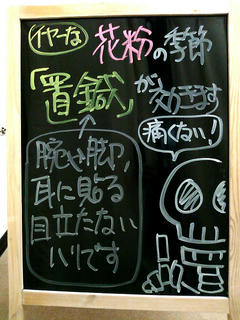 イヤ〜な
花粉の季節
「置鍼」が効きます
痛くない!
腕や脚、
耳に貼る
目立たない
ハリです